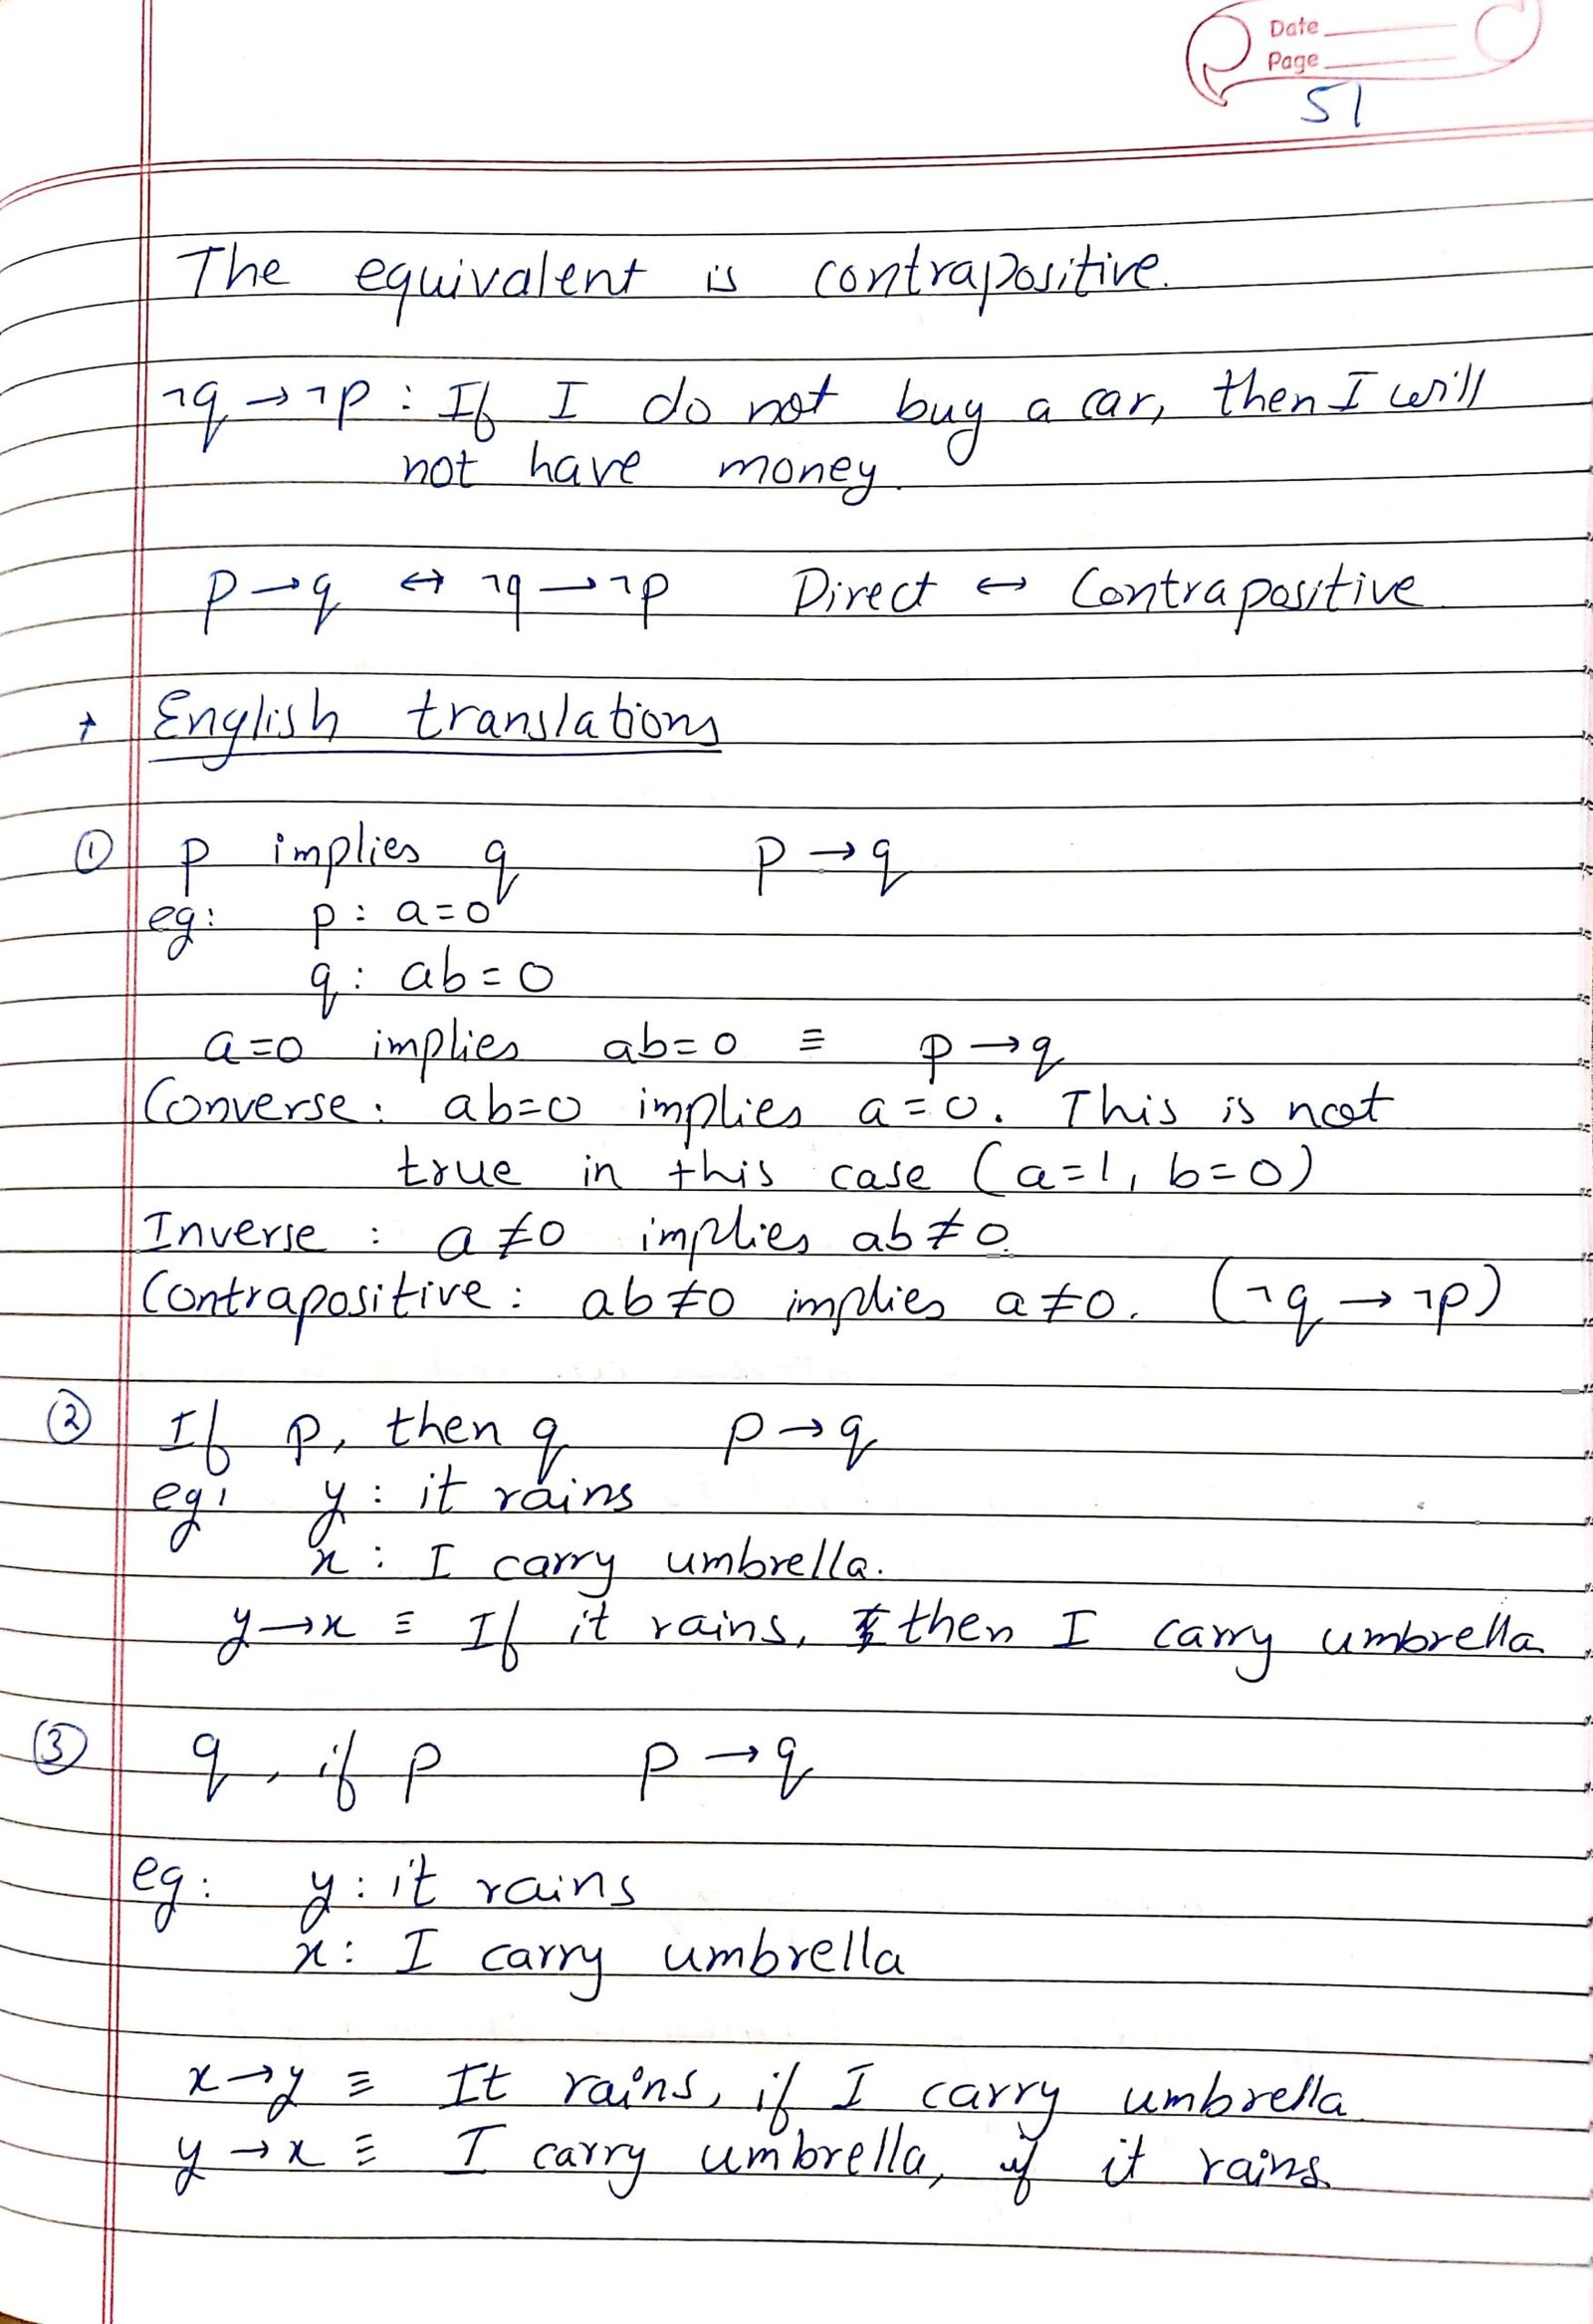 Date
Page
51
The equivalent is contrapositive.
¬q → ¬p : If I do not buy a car, then I will
not have money.
p → q ↔ ¬q → ¬p Direct ↔ Contrapositive
English translations
① p implies q p → q
eg: p : a = 0
q : ab = 0
a=0 implies ab=0 ≡ p → q
Converse: ab=0 implies a=0. This is not
true in this case (a=1, b=0)
Inverse : a ≠ 0 implies ab ≠ 0.
Contrapositive : ab ≠ 0 implies a ≠ 0. (¬q → ¬p)
② If p, then q p → q
eg: y : it rains
x : I carry umbrella.
y → x ≡ If it rains, then I carry umbrella
③ q, if p p → q
eg: y : it rains
x : I carry umbrella
x → y ≡ It rains, if I carry umbrella.
y → x ≡ I carry umbrella, if it rains.